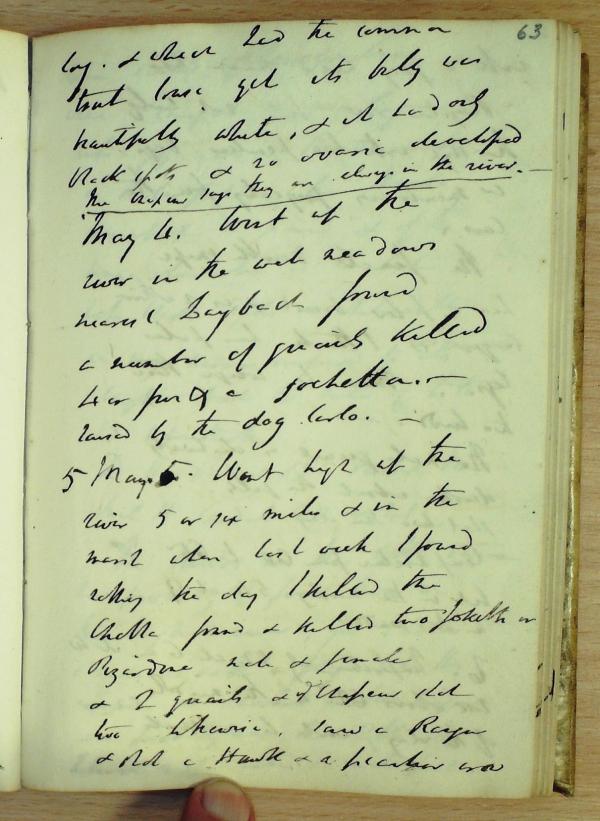 63
& which had the common
trout yet its belly was
beautifully white, & it had only
black spots & no ovaria developed
The says they are always in the river. —
May 4. Went up the
river in the wet meadows
nearest Laybach found
a number of quails killed
four & a
raised by the dog Carlo. —
5 May 5. Went high up the
river 5 or six miles & in the
marsh where last week I found
nothing the day I killed the
found & killed two or
male & female
& 2 quails & shot
two likewise. Saw a
& shot a Hawk & a peculiar crow